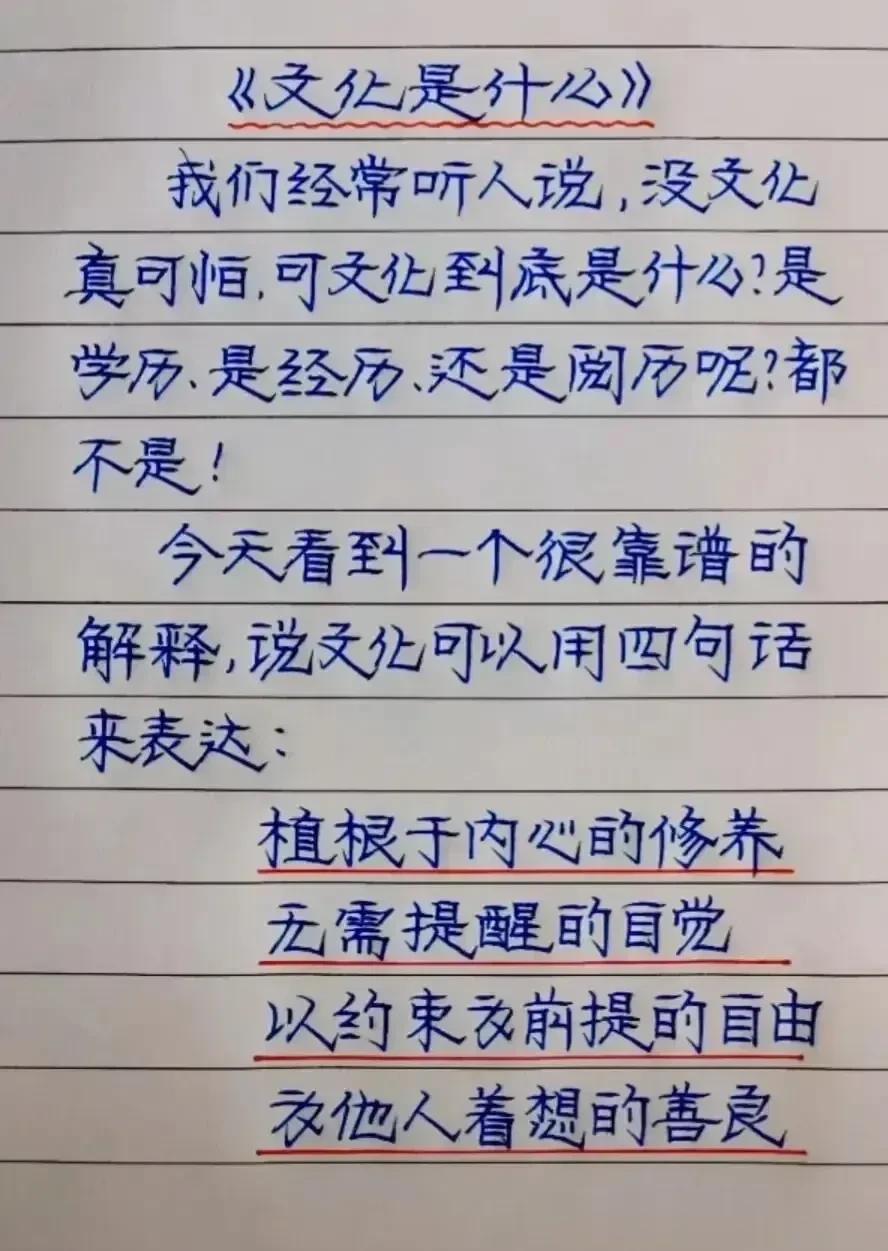 《文化是什么》
我们经常听人说,没文化
真可怕,可文化到底是什么?是
学历、是经历、还是阅历呢?都
不是!
今天看到一个很靠谱的
解释,说文化可以用四句话
来表达:
植根于内心的修养
无需提醒的自觉
以约束为前提的自由
为他人着想的善良